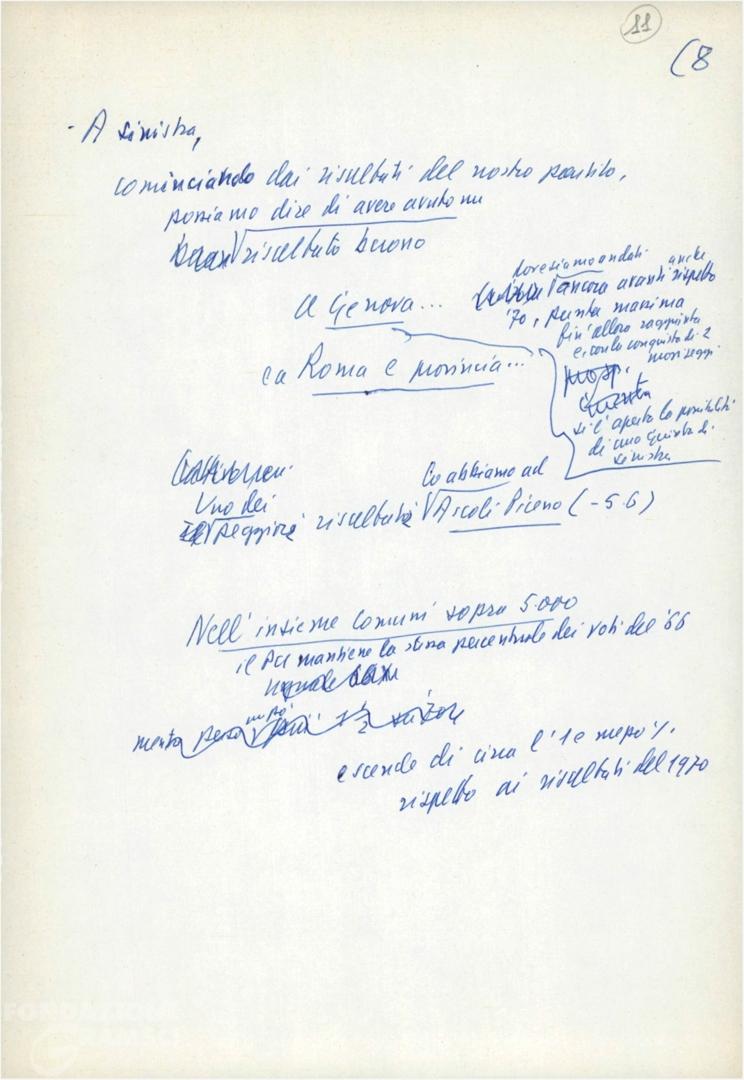 11
(8
- A sinistra,
cominciando dai risultati del nostro partito,
possiamo dire di avere avuto un
risultato buono
a Genova...
dove siamo andati anche
ancora avanti rispetto
'70, punta massima
fin'allora raggiunta
e con la conquista di 2
nuovi seggi
si è aperta la possibilità
di una Giunta di
sinistra
ea Roma e provincia...
Uno dei
peggiori risultati
lo abbiamo ad
Ascoli Piceno (-5.6)
Nell'insieme comuni sopra 5.000
il PCI mantiene la stessa percentuale dei voti del '66
mentre però
e scende di circa l'1 e mezzo %
rispetto ai risultati del 1970
FONDAZIONE
GRAMSCI